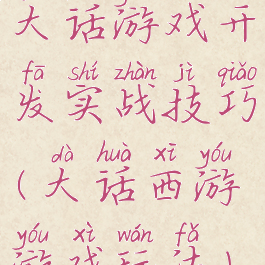 大话游戏开
fā shí zhàn jì qiǎo
发实战技巧
dà huà xī yóu
(大话西游
yóu xì wán fǎ
游戏玩法)